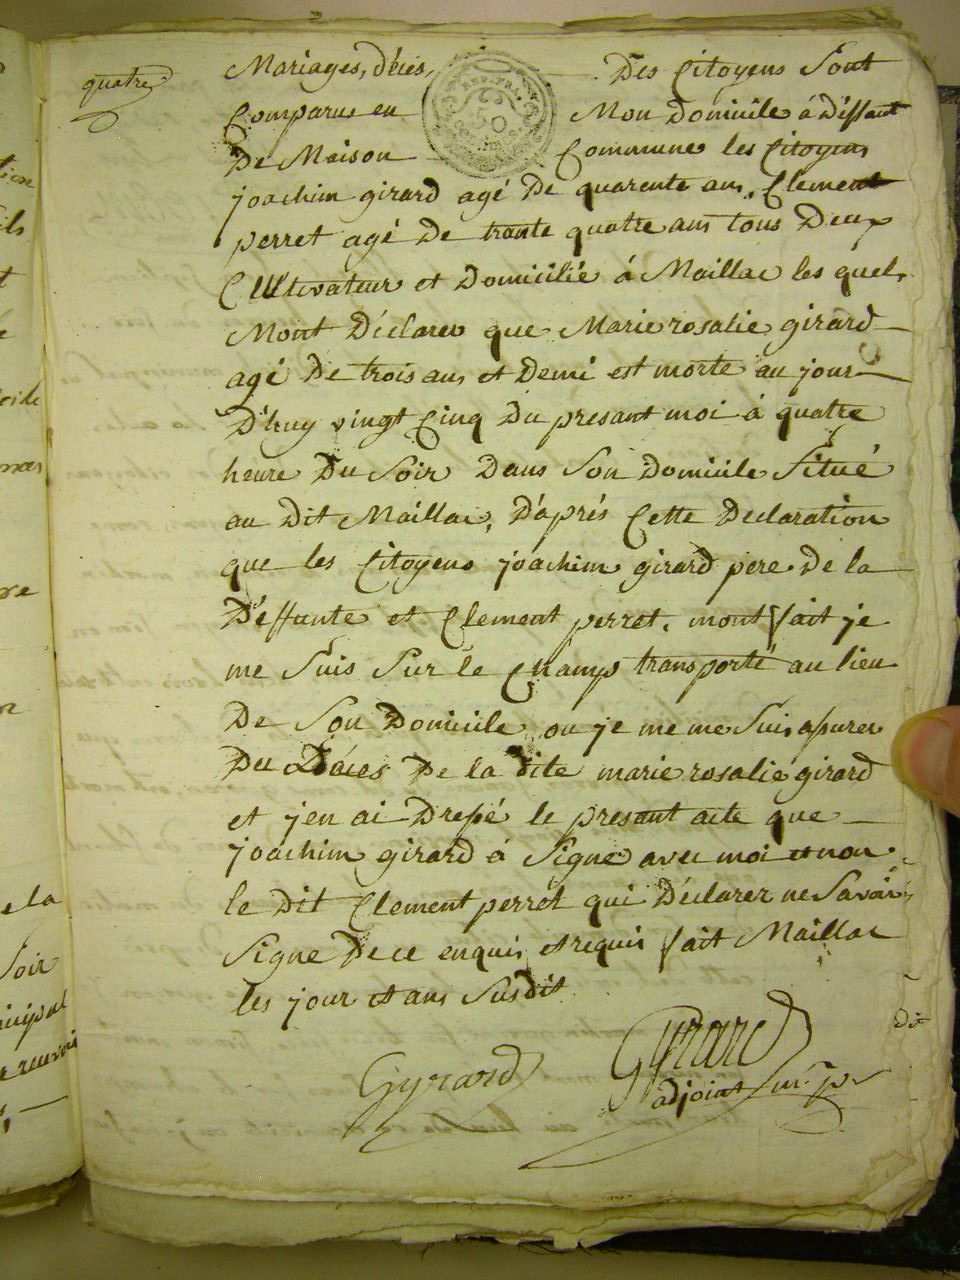 quatre
Mariages, décés, Des Citoyens Sont
Comparus en Mon Domicile á Déffaut
De Maison Commune les Citoyens
joachim girard agé De quarente ans, Clement
perret agé De trante quatre ans tous Deux
Cultivateur et Domicilié á Maillac les quel,
Mont Déclarer que Marie rosalie girard
agé De trois ans et Demi est morte au jour
D'huy vingt Cinq Du presant moi á quatre
heure Du Soir Dans Son Domicile Situé
au Dit Maillac, D'aprés Cette Declaration
que les Citoyens joachim girard pere De la
Déffunte et Clement perret, mont fait je
me Suis Sur le Champs transporté au lieu
De Son Domicile ou je me me Suis assurer
Du Déces De la dite marie rosalie girard
et jen ai Dressé le presant acte que
joachim girard á Signe avec moi et non
le Dit Clement perret qui Déclarer ne Savoir
Signe De ce enquis et requis fait Maillac
les jour et ans Susdit
Gyrard Gyrard
adjoint